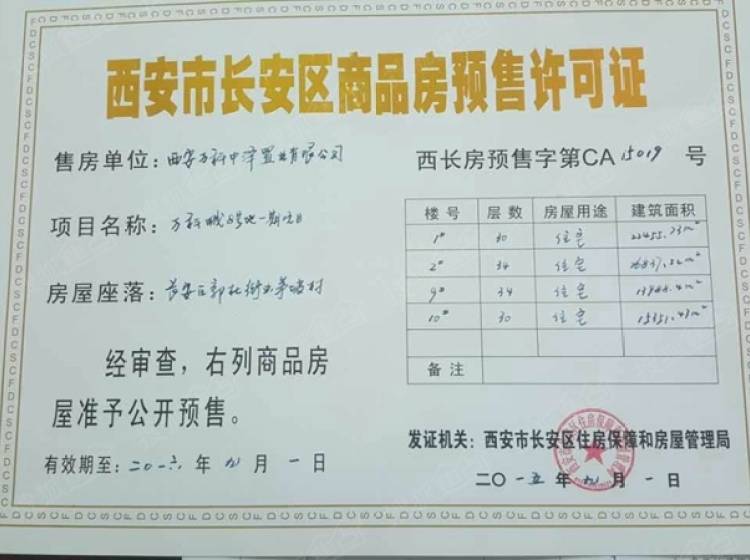 西安市长安区商品房预售许可证
售房单位：西安万科中泽置业有限公司
西长房预售字第CA 15019 号
项目名称：万科城8号地一期
房屋座落：长安区郭杜街办茅坡村
楼号 层数 房屋用途 建筑面积
1# 30 住宅
2# 34 住宅
9# 34 住宅
10# 30 住宅 15351.43m²
备注
经审查，右列商品房
屋准予公开预售。
有效期至：二〇一六年九月一日
发证机关：西安市长安区住房保障和房屋管理局
二〇一五年九月一日